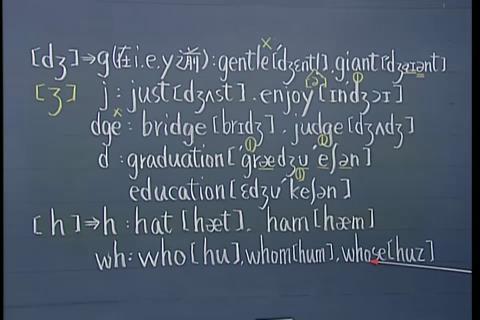 [dʒ]⇒g(在i.e.y之前):gentle[ˈdʒɛntl].giant[dʒaɪənt]
[ʒ] j:just[dʒʌst].enjoy[ɪndʒɔɪ]
dge:bridge[brɪdʒ].judge[dʒʌdʒ]
d:graduation[ˈgrædʒʊˈeʃən]
education[ɛdʒʊˈkeʃən]
[h]⇒h:hat[hæt].ham[hæm]
wh:who[hu],whom[hum],whose[huz]